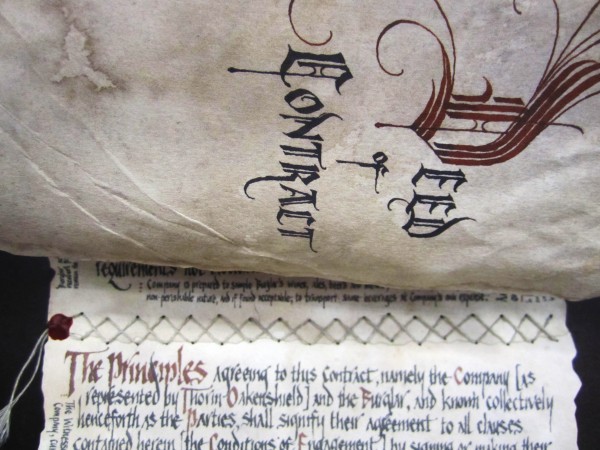 Deed
of
Contract
requirements not
Company is prepared to sample Burglar's wines, ales, beers
non perishable nature, and if found acceptable, to transport some beverages at Company's own expense.
The Principles agreeing to this contract, namely the Company [as
represented by Thorin Oakenshield] and the Burglar, and known collectively
henceforth as the Parties, shall signify their agreement to all clauses
contained herein [the Conditions of Engagement] by signing or making their
The Witness
Company,